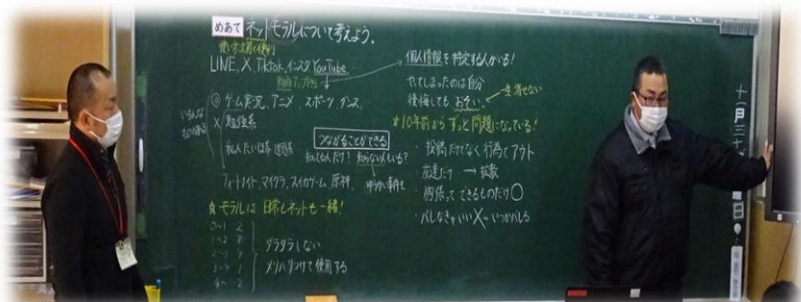 めあて ネットモラルについて考えよう。
使い方次第で便利
LINE, X, Tiktok, インスタ YouTube
動画アップ
◎ ゲーム実況、アニメ スポーツ、ダンス
X 勉強系
つながることができる
知ってる人だけ? 知らない人もいる?
フォートナイト、マイクラ、スイカゲーム、原神
ゆうかい事件も
☆ モラルは 日常もネットも一緒!
0~1 2
1~2 8
ダラダラしない
メリハリつけて使用する
個人情報を特定する人がいる!
やってしまったのは自分
後悔しても おそい。
一生消せない
10年前からずっと問題になっている!
・投稿だけでなく行為でアウト
・友達だけ → 拡散
・胸張ってできるものだけ○
・バレなきゃいい X → いつかバレる
十一月三十日